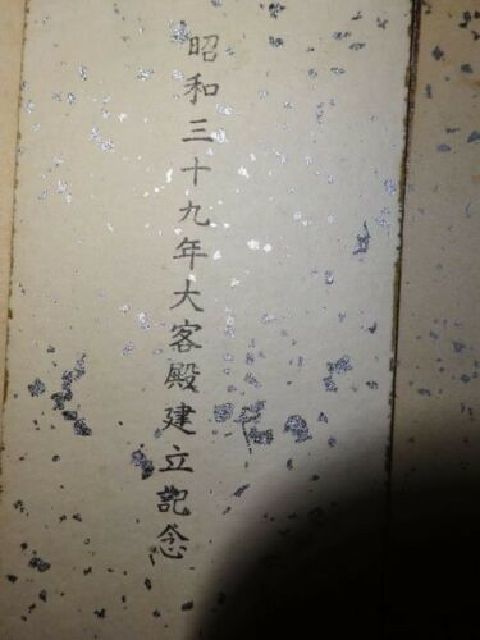 昭和三十九年大客殿建立記念